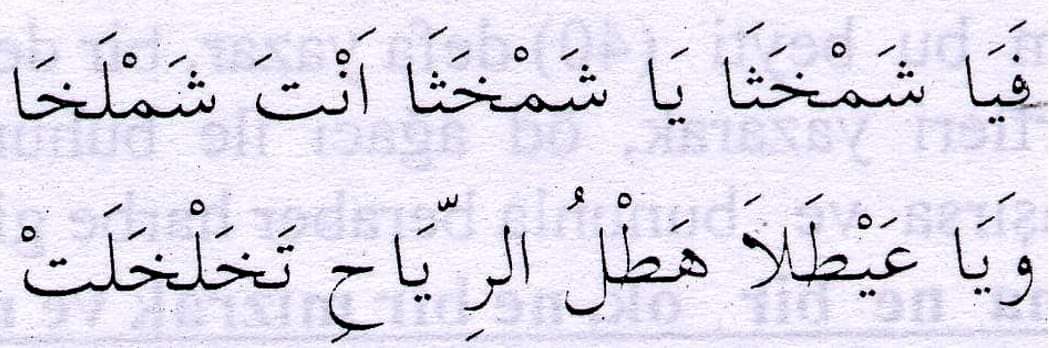 فَيَا شَمْخَثَا يَا شَمْخَثَا اَنْتَ شَمْلَخَا
وَيَا عَيْطَلاَ هَطْلُ الرِّيَاحِ تَخَلْخَلَتْ